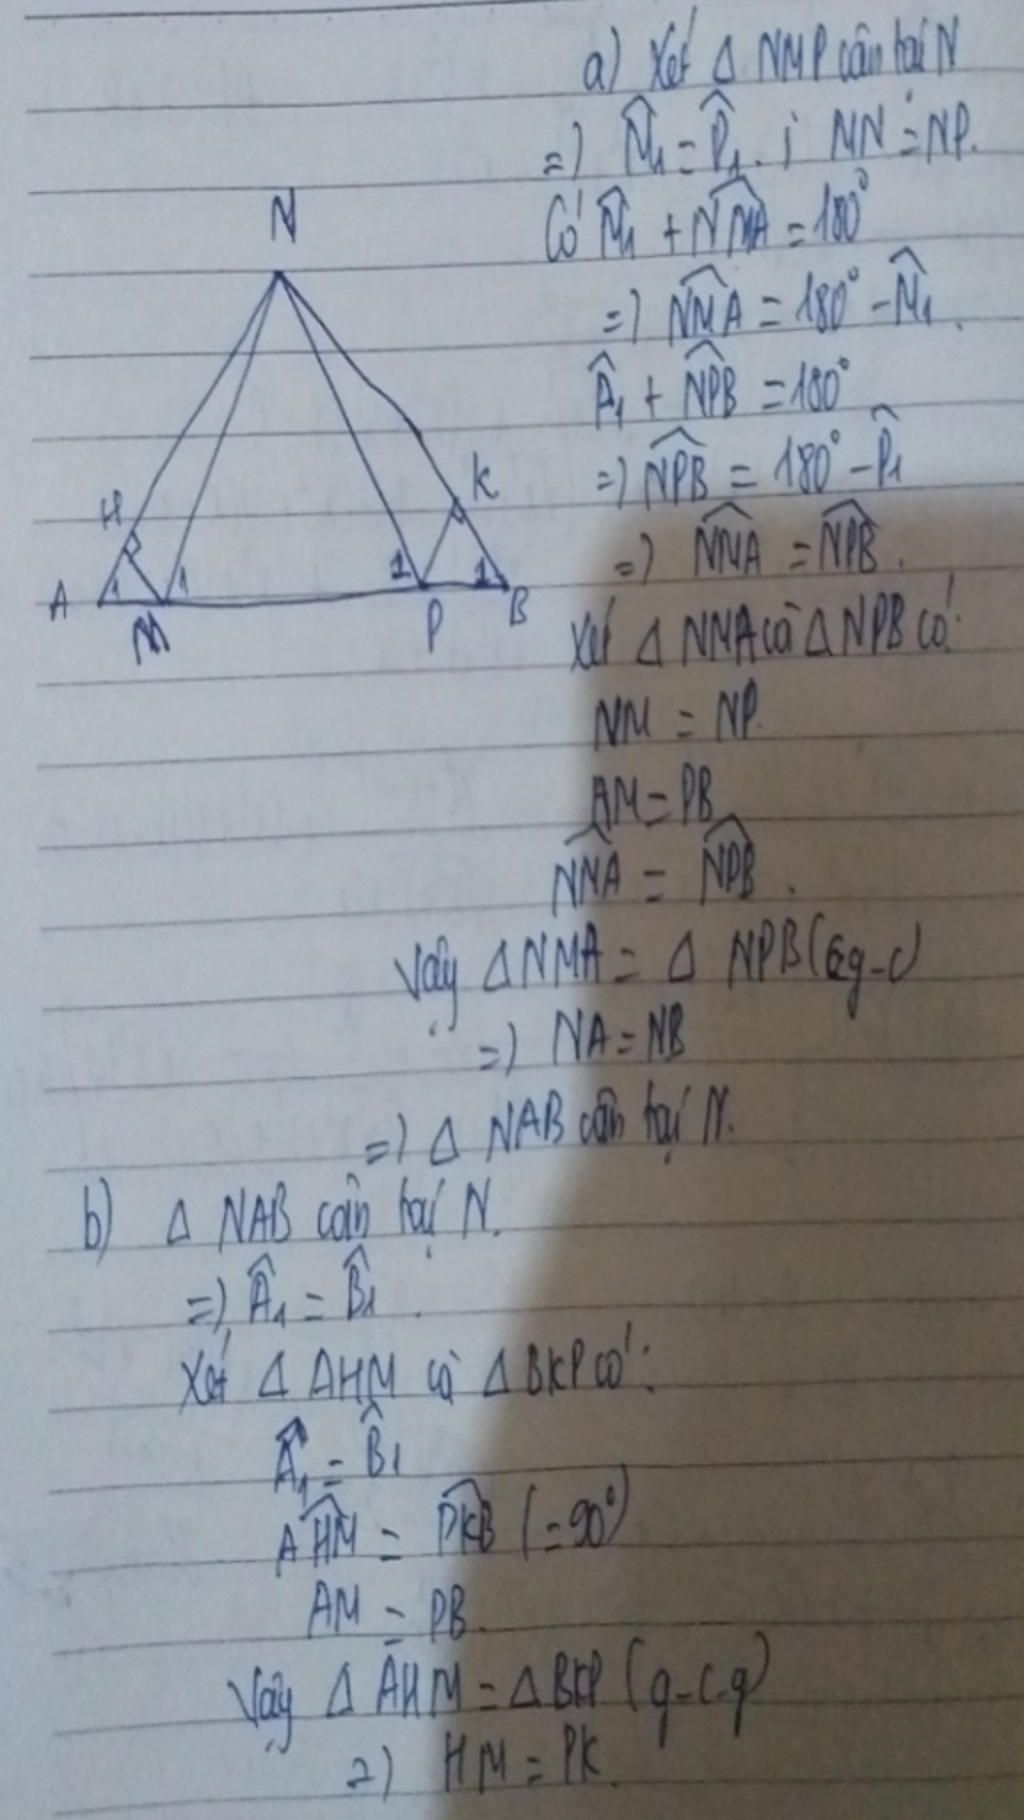 a) Xét Δ NMP cân tại N
=) M̂₁ = P̂₁. ; MN = NP.
Có M̂₁ + N͡MA = 180°
=) N͡MA = 180° - M̂₁.
Â₁ + N͡PB = 180°
=) N͡PB = 180° - P̂₁
=) N͡MA = N͡PB.
Xét Δ NMA và Δ NPB có:
NM = NP.
AM = PB
N͡MA = N͡PB.
Vậy Δ NMA = Δ NPB (c-g-c)
=) NA = NB
=) Δ NAB cân tại N.
N
H
K
A
1
1
1
1
B
M
P
b) Δ NAB cân tại N.
=) Â₁ = B̂₁.
Xét Δ AHM và Δ BKP có:
Â₁ = B̂₁
A͡HM = P͡KB (=90°)
AM = PB.
Vậy Δ AHM = Δ BKP (g-c-g)
=) HM = PK.